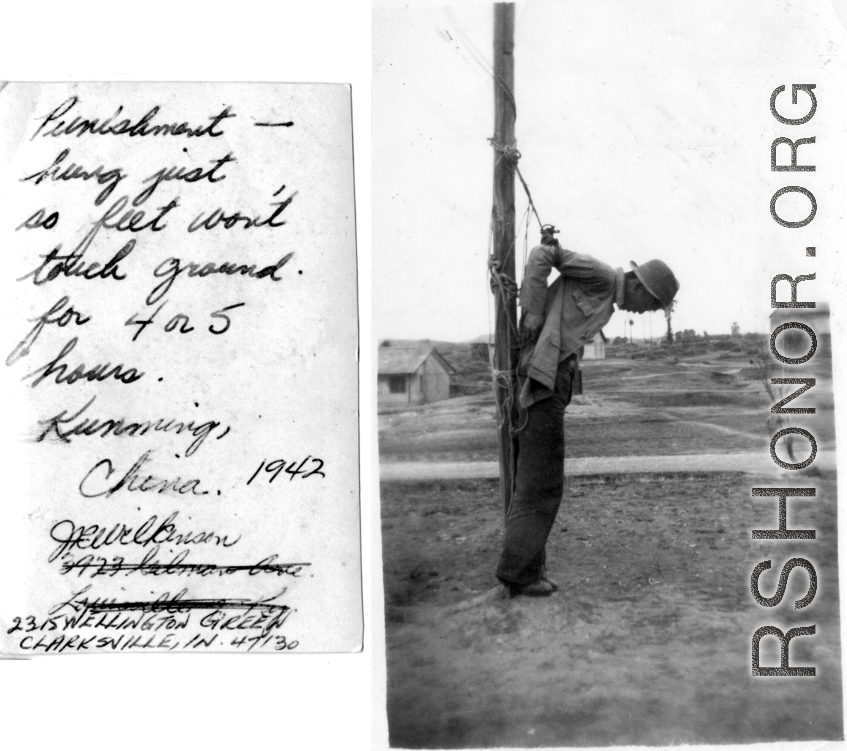 Punishment —
hung just
so feet won't
touch ground.
for 4 or 5
hours.
Kunming,
China. 1942
JEWilkinson
Louisville Ky.
2315 WELLINGTON GREEN
CLARKSVILLE, IN. 47130
RSHONOR.ORG